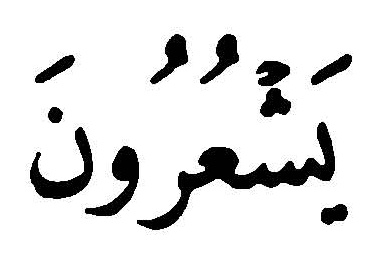 يَشۡعُرُونَ